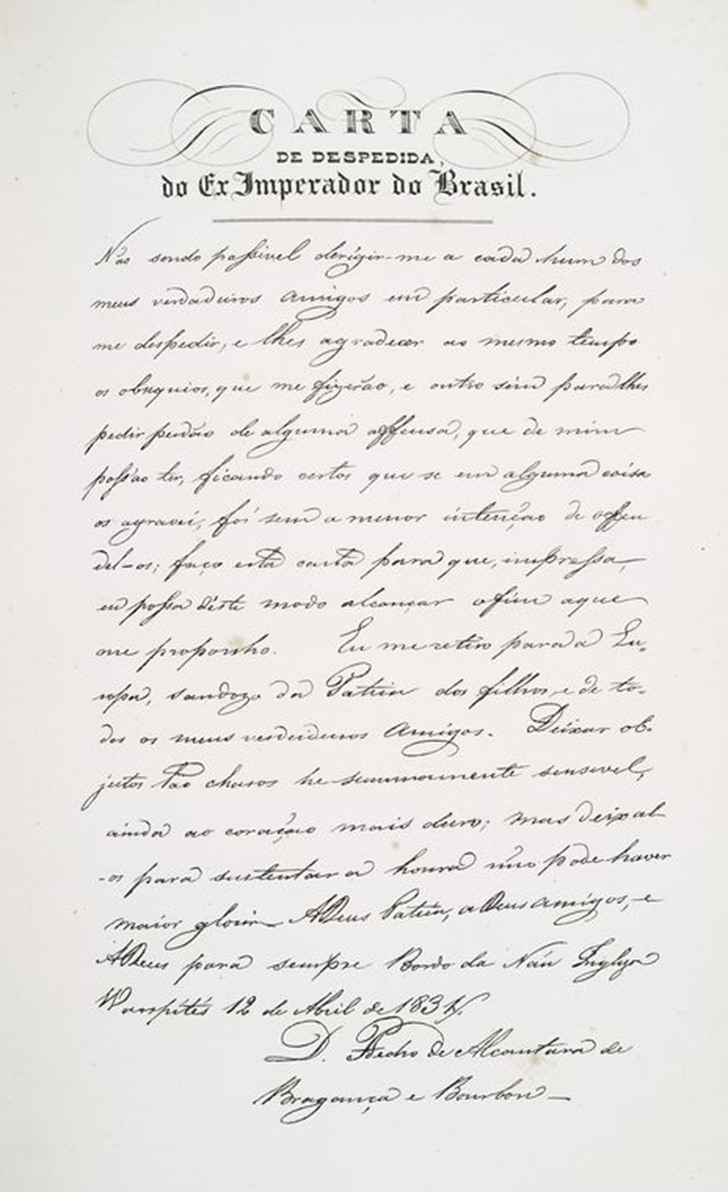 CARTA
DE DESPEDIDA,
do Ex Imperador do Brasil.
Não sendo possivel derigir-me a cada hum dos
meus verdadeiros amigos em particular, para
me despedir, e lhes agradecer ao mesmo tempo
os obsequios, que me fizerão, e outro sim para lhes
pedir perdão de alguma offensa, que de mim
possão ter, ficando certos que se em alguma coisa
os agravei, foi sem a menor intenção de offen
del-os; faço esta carta para que, impressa,
eu possa deste modo alcançar o fim a que
me proponho. Eu me retiro para a Eu-
ropa, saudozo da Patria dos filhos, e de to-
dos os meus verdadeiros Amigos. Deixar ob-
jectos tão charos he summamente sensivel,
ainda ao coração mais duro; mas deixal
-os para sustentar a honra não pode haver
maior gloria ADeus Patria, aDeus amigos, e
ADeus para sempre Bordo da Náu Ingleza
Warspite 12 de Abril de 1831.
D. Pedro de Alcantara de
Bragança e Bourbon —